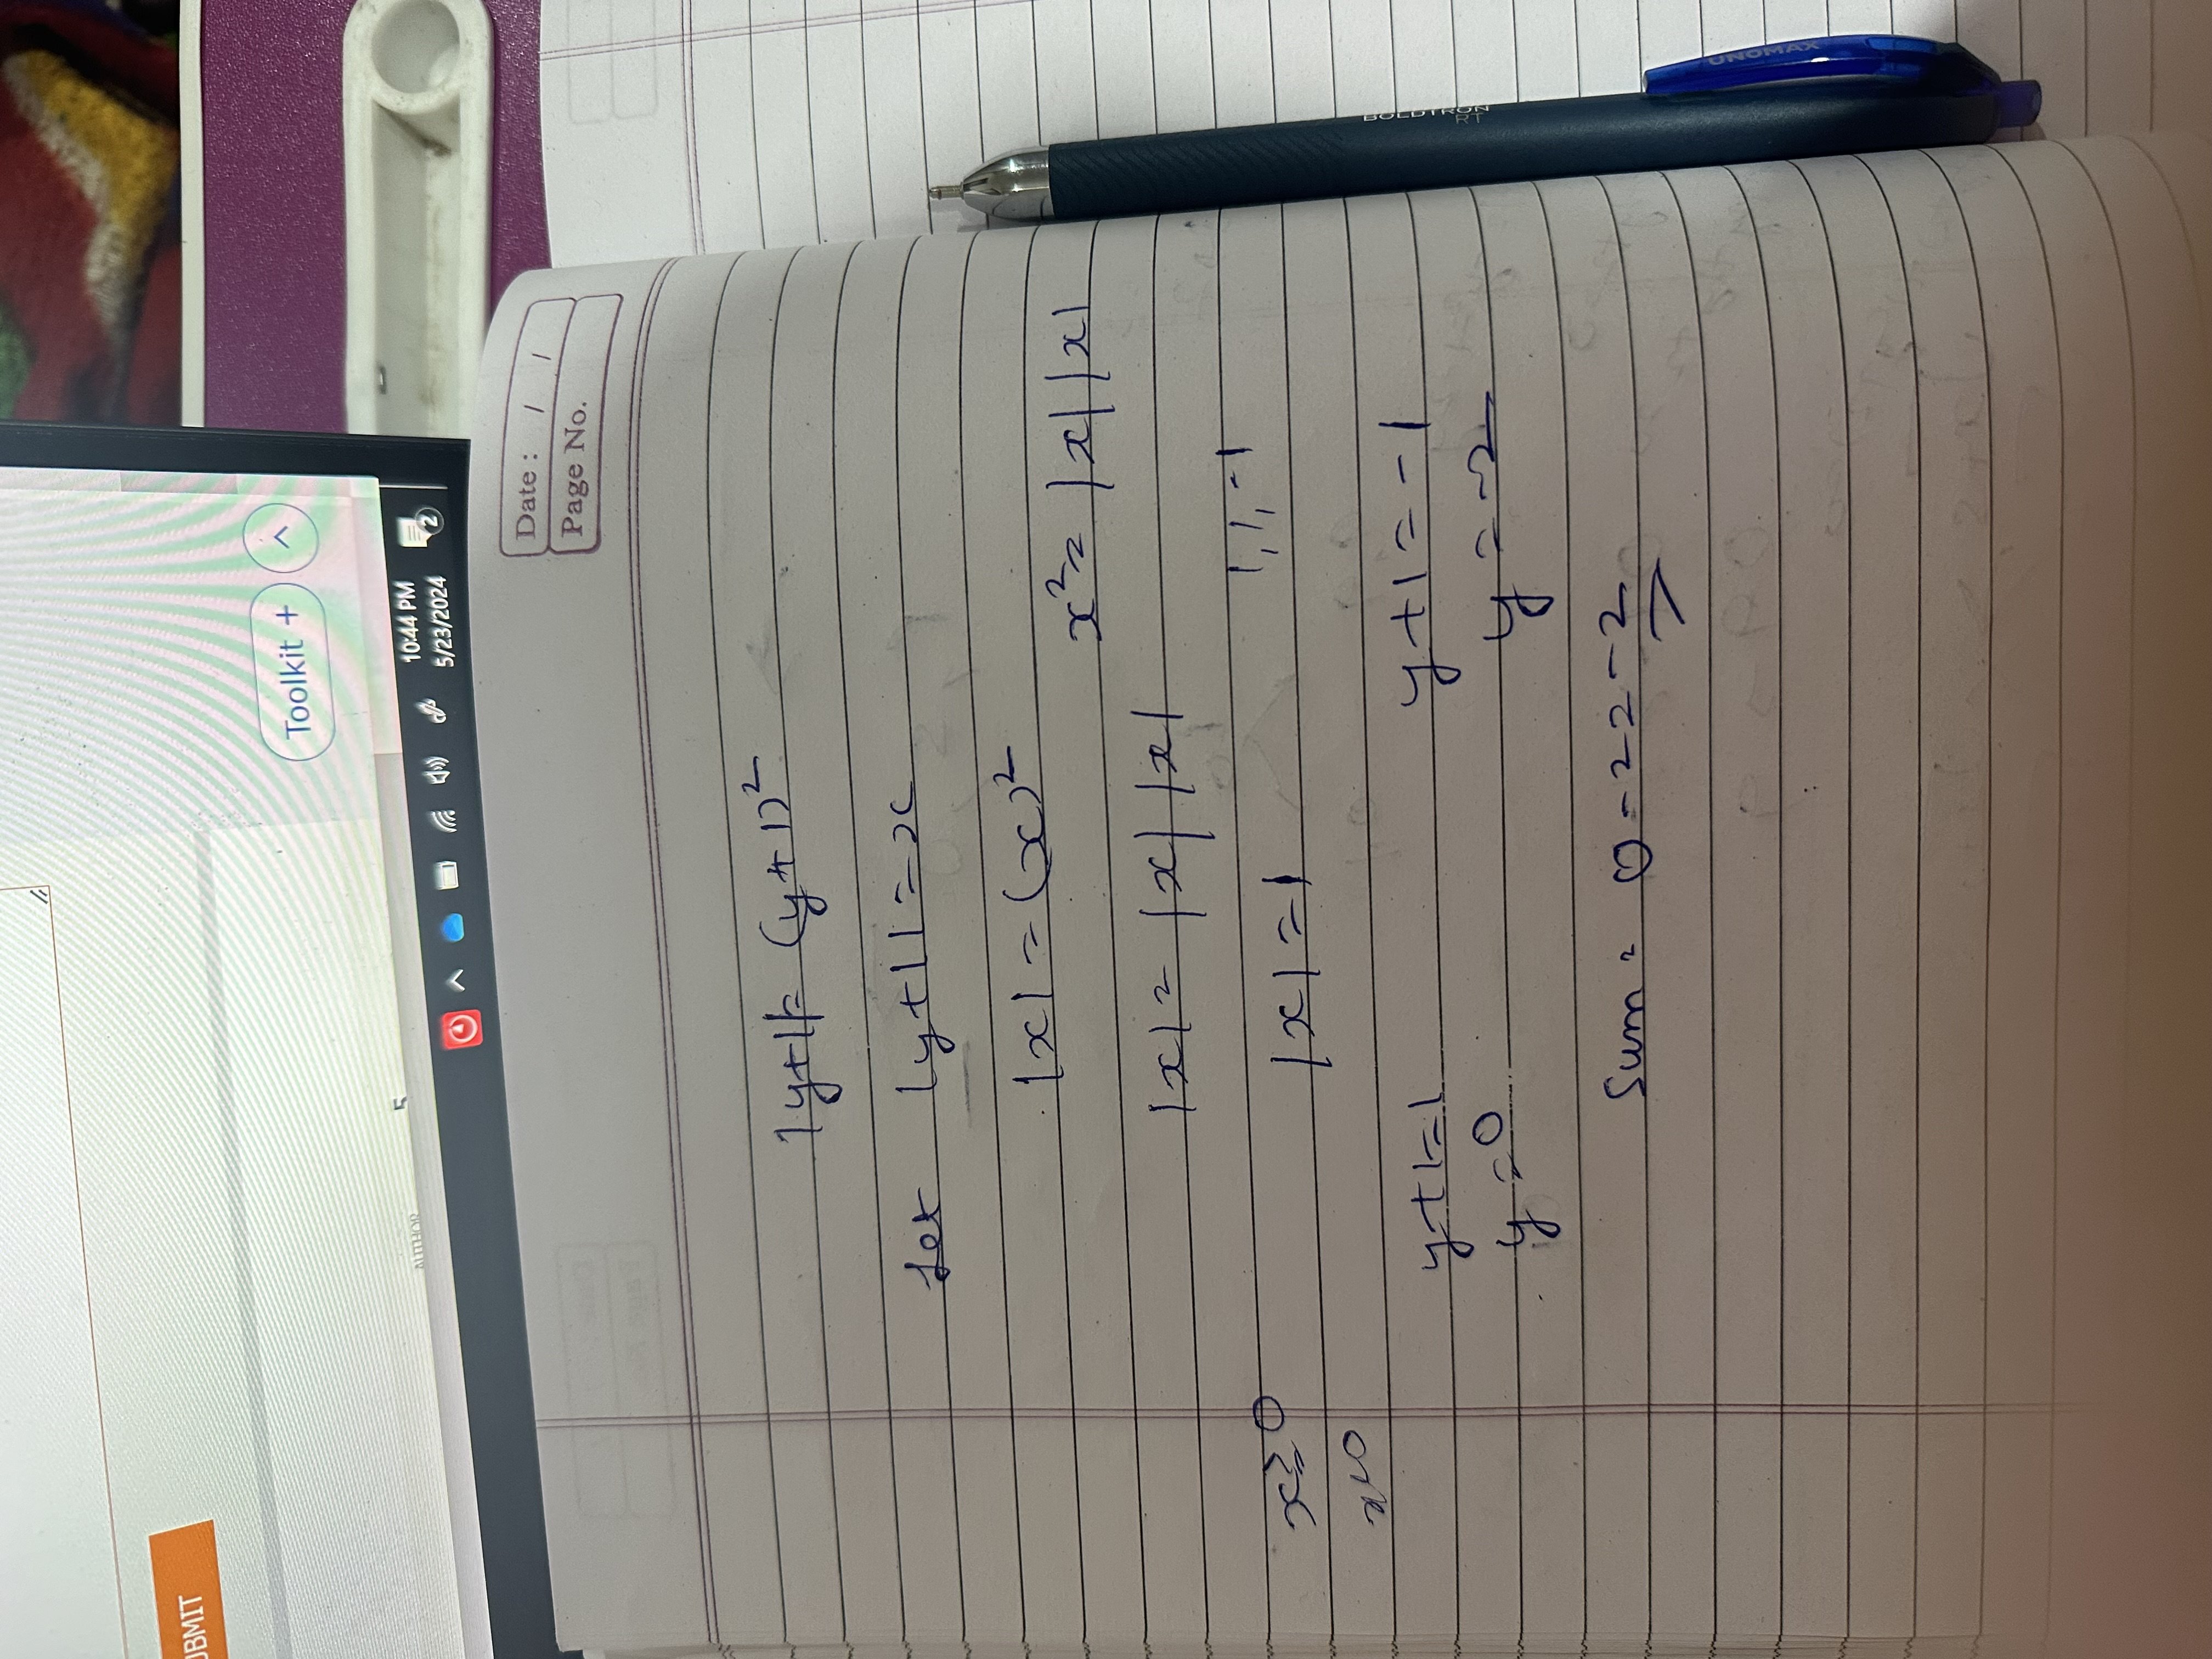 Date : / /
Page No.
|y+1| = (y+1)²
Let |y+1| = x
|x| = (x)²
x² = |x| |x|
|x| = |x| |x|
1, 1, -1
x ≥ 0
|x| = 1
x<0
y+1=1
y+1=-1
y=0
y=-2
Sum = 0-2=-2
UNOMAX
BOLDTRON
RT
Toolkit +
10:44 PM
5/23/2024
2
5
AUTHOR
UBMIT